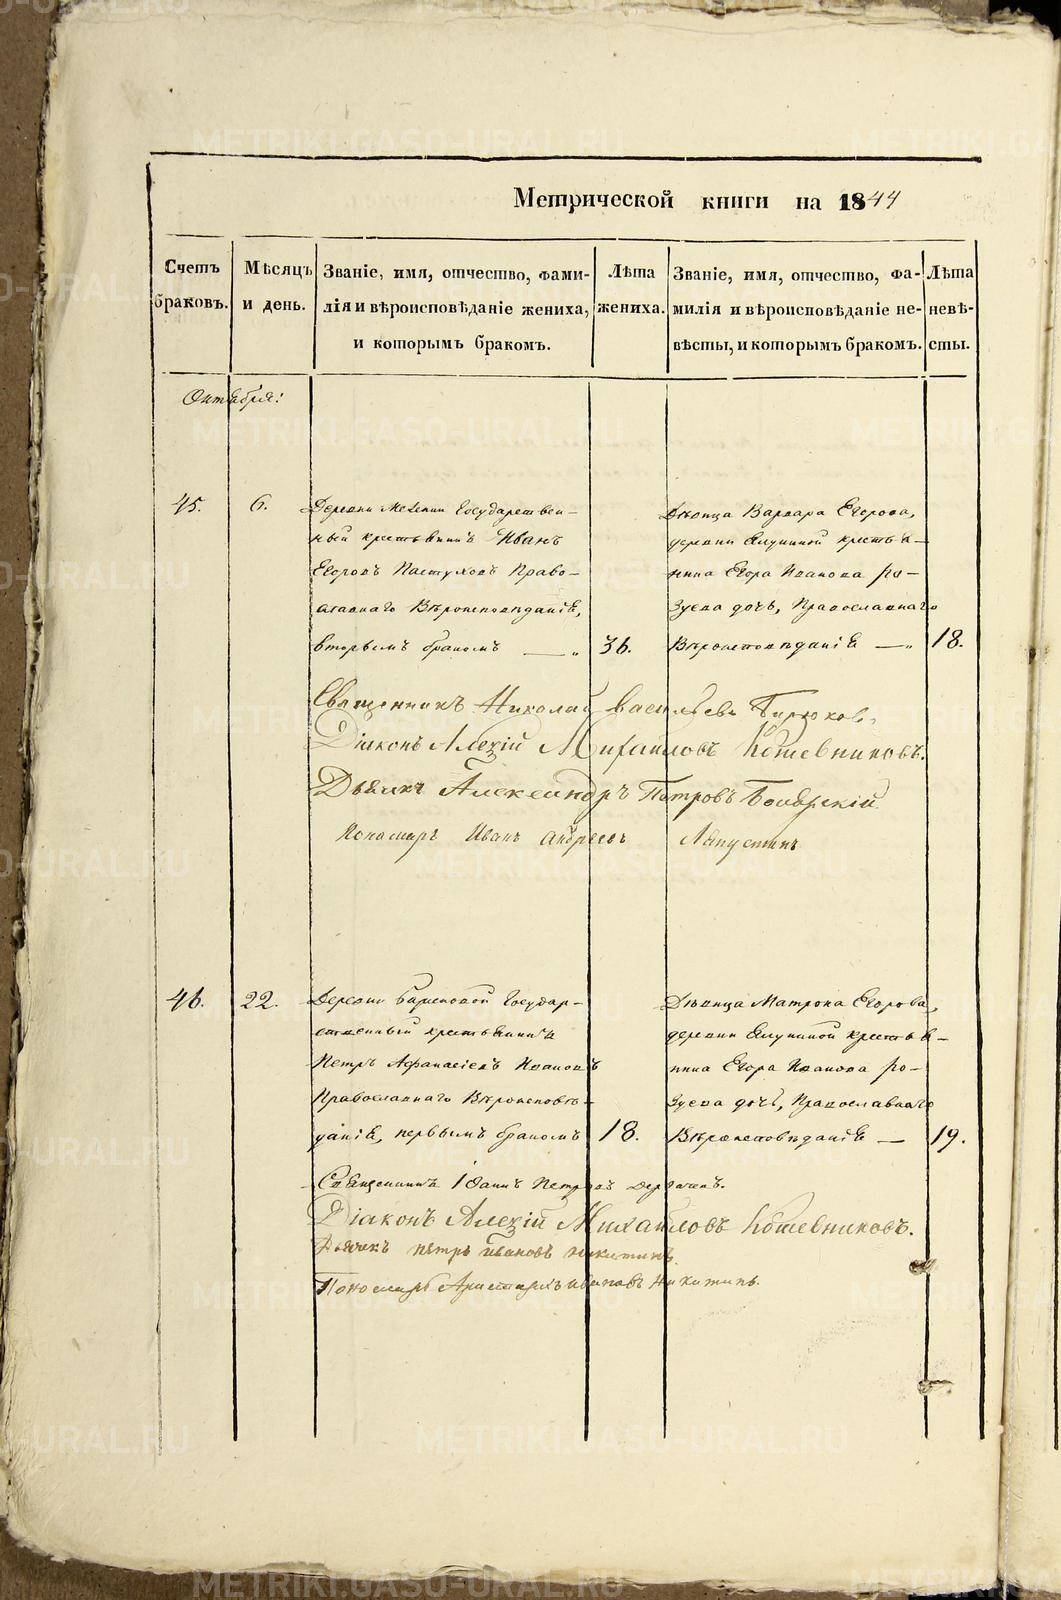 Метрической книги на 1844
Счетъ браковъ.
Мѣсяцъ и день.
Званіе, имя, отчество, фами-
лія и вѣроисповѣданіе жениха,
и которымъ бракомъ.
Лѣта жениха.
Званіе, имя, отчество, фа-
милія и вѣроисповѣданіе не-
вѣсты, и которымъ бракомъ.
Лѣта невѣ-
сты.
Октября:
45.
6.
Деревни Государствен-
ный крестьянинъ Иванъ
Егоровъ Пастуховъ Право-
славнаго Вѣроисповѣданіе,
вторымъ бракомъ
36.
Дѣвица Варвара Егорова,
деревни Ялуниной крестья-
нина Егора Иванова Ро-
зуева дочь, Православнаго
Вѣроисповѣданіе
18.
Священникъ Николай Васильевъ Бирюковъ,
Діаконъ Алексій Михайловъ Кожевниковъ.
Дьячекъ Александръ Петровъ Боярскій
Пономарь Иванъ Андреевъ Ляпустинъ
46.
22.
Деревни Государ-
ственный крестьянинъ
Петръ Афанасіевъ Ивановъ
Православнаго Вѣроисповѣ-
даніе, первымъ бракомъ
18.
Дѣвица Матрона Егорова,
деревни Ялуниной крестья-
нина Егора Иванова Ро-
зуева дочь, Православнаго
Вѣроисповѣданіе
19.
Священникъ Іоаннъ Петровъ Дерябинъ.
Діаконъ Алексій Михайловъ Кожевниковъ.
Дьячекъ Петръ Ивановъ Никитинъ.
Пономарь Аристархъ Ивановъ Никитинъ.
METRIKI.GASO-URAL.RU